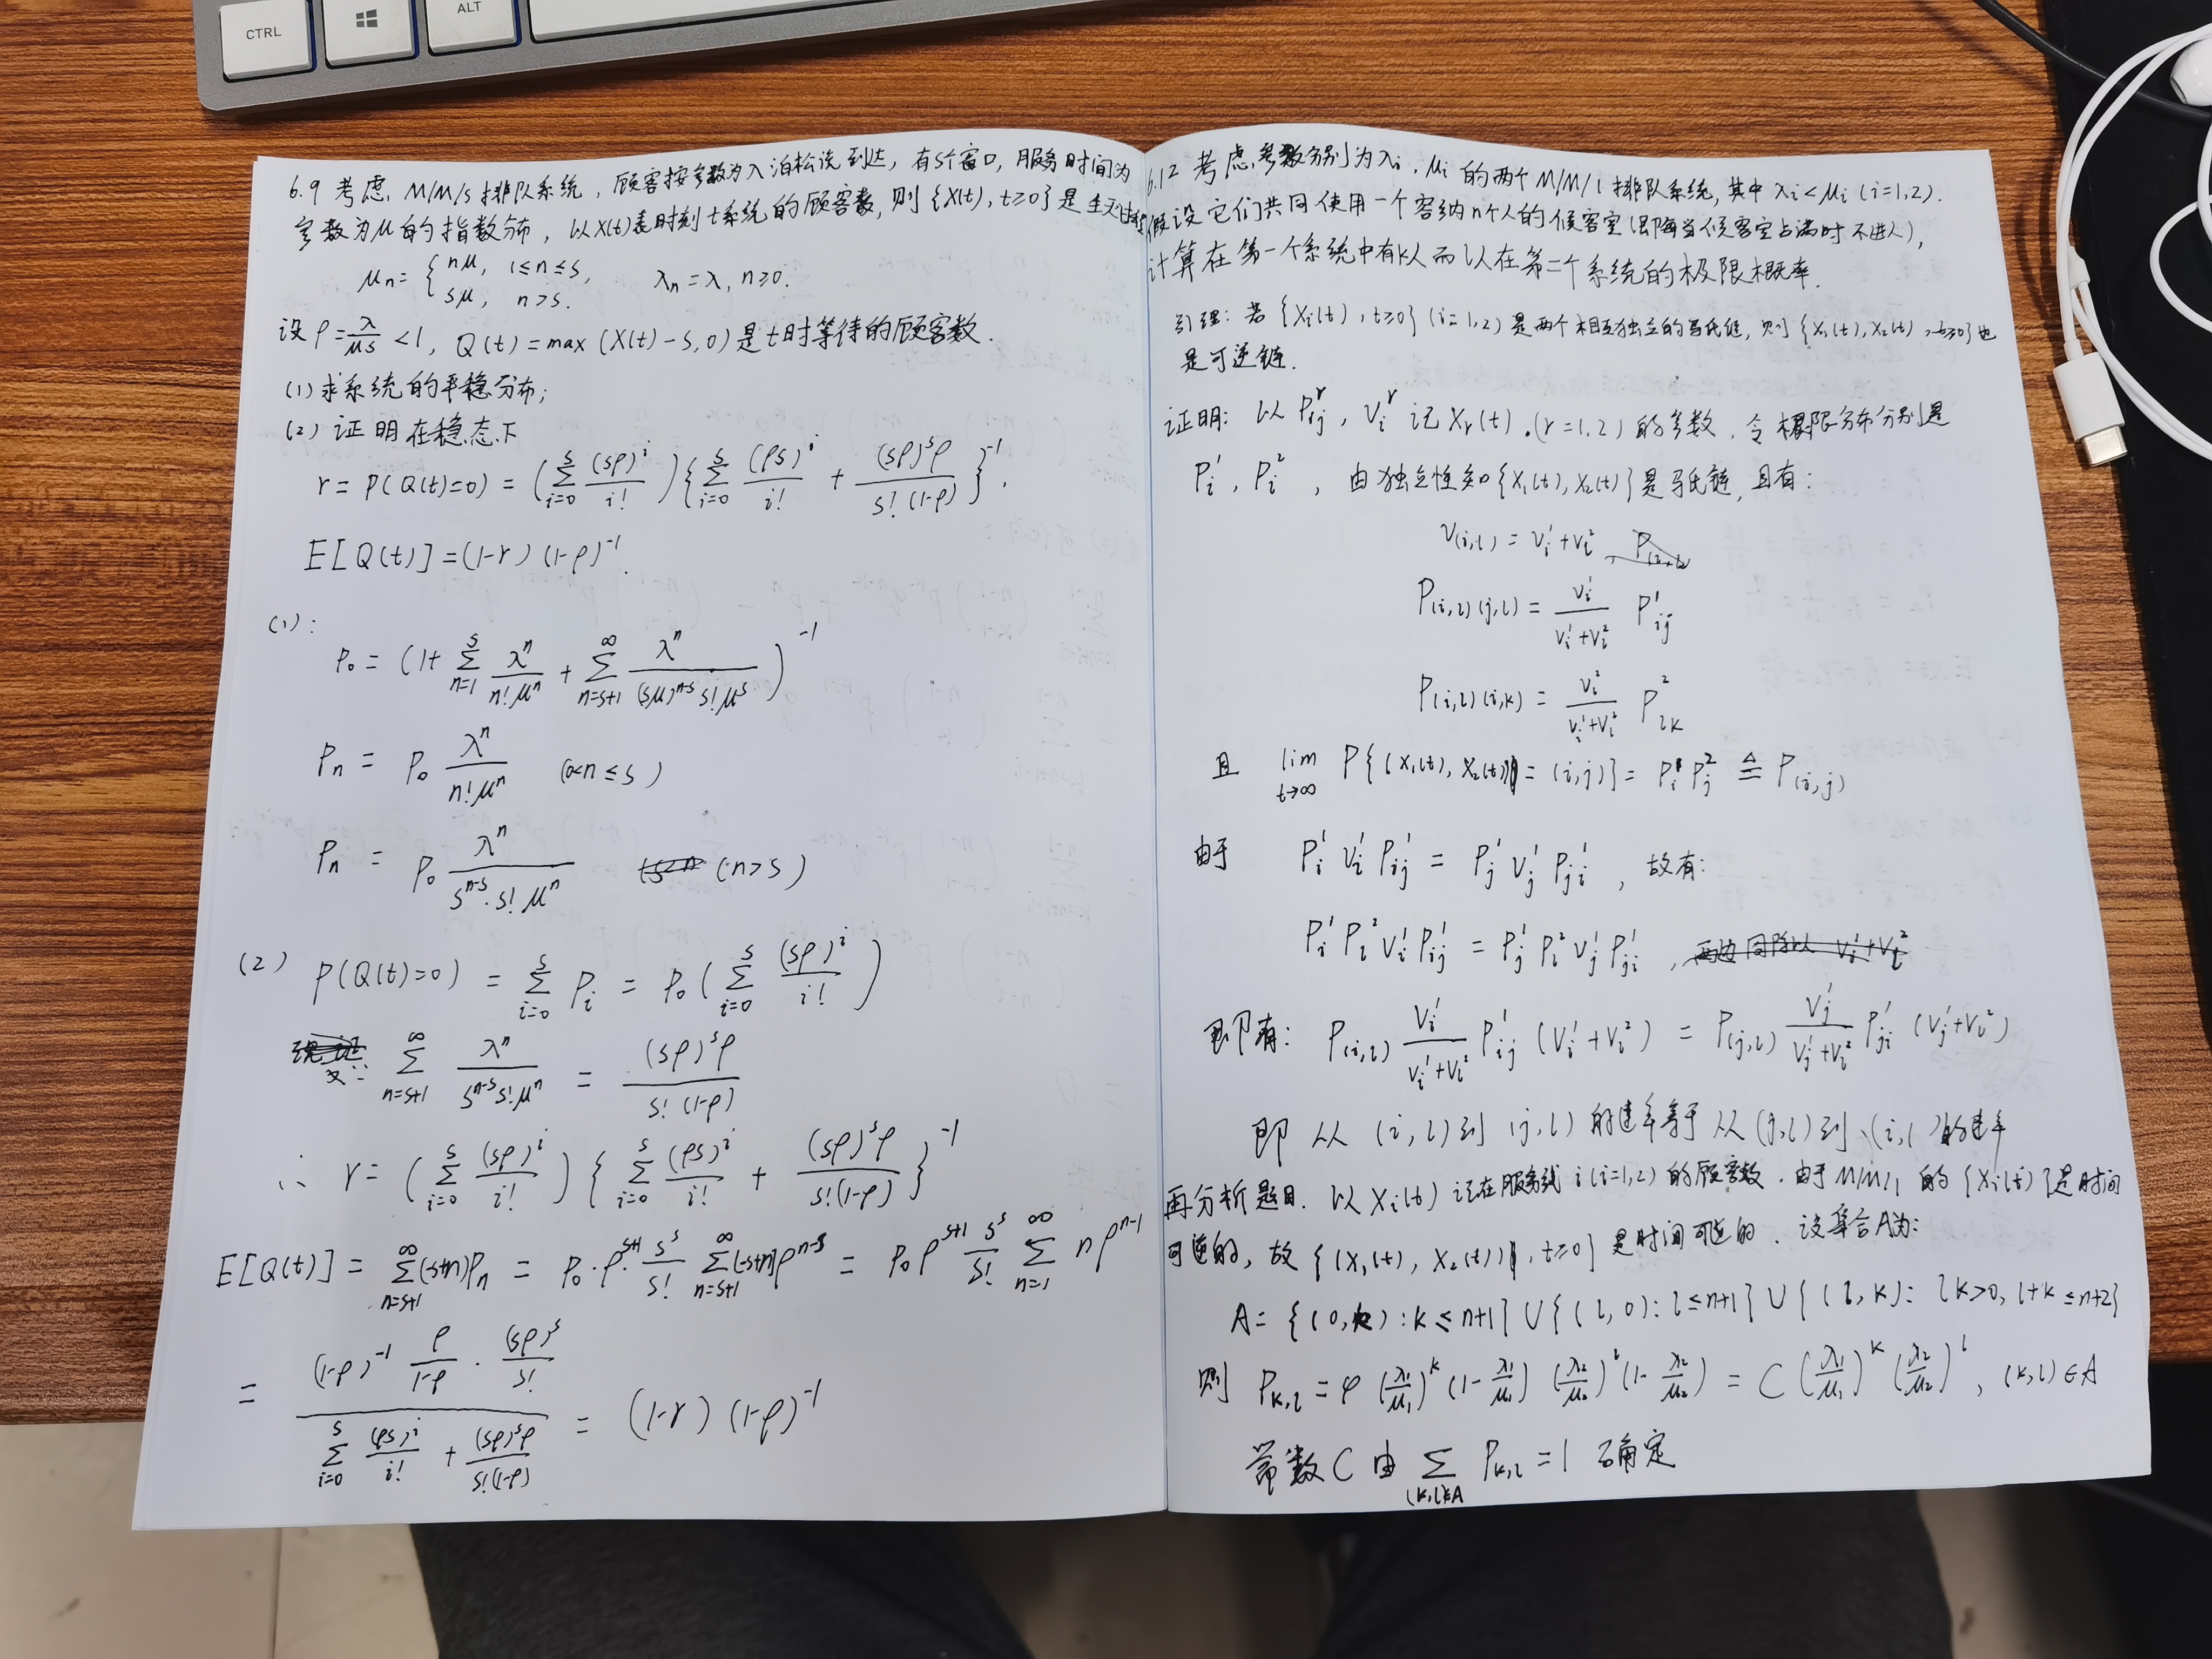 CTRL
ALT
6.9 考虑 M/M/s 排队系统, 顾客按参数为λ泊松流到达, 有s个窗口, 服务时间为
参数为μ的指数分布, 以X(t)表时刻t系统的顾客数, 则{X(t), t≥0}是生灭过程
μn = { nμ, 1≤n≤s, λn = λ, n≥0.
sμ, n>s.
设 ρ = λ/μs < 1, Q(t) = max (X(t)-s, 0) 是t时等待的顾客数.
(1) 求系统的平稳分布;
(2) 证明在稳态下
r = P(Q(t)=0) = (Σ_{i=0}^{s} (sρ)^i/i!) {Σ_{i=0}^{s} (ρs)^i/i! + (sρ)^s ρ/s!(1-ρ)}^{-1},
E[Q(t)] = (1-r)(1-ρ)^{-1}.
(1):
P0 = (1+ Σ_{n=1}^{s} λ^n/n!μ^n + Σ_{n=s+1}^{∞} λ^n/(sμ)^{n-s} s!μ^s)^{-1}
Pn = P0 λ^n/n!μ^n (0<n≤s)
Pn = P0 λ^n/s^{n-s}·s!μ^n (n>s)
(2) P(Q(t)=0) = Σ_{i=0}^{s} Pi = P0 (Σ_{i=0}^{s} (sρ)^i/i!)
又∵ Σ_{n=s+1}^{∞} λ^n/s^{n-s}s!μ^n = (sρ)^s ρ/s!(1-ρ)
∴ r = (Σ_{i=0}^{s} (sρ)^i/i!) {Σ_{i=0}^{s} (ρs)^i/i! + (sρ)^s ρ/s!(1-ρ)}^{-1}
E[Q(t)] = Σ_{n=s+1}^{∞} (-s+n)Pn = P0·ρ^{s+1}·s^s/s! Σ_{n=s+1}^{∞} (-s+n)ρ^{n-s} = P0 ρ^{s+1} s^s/s! Σ_{n=1}^{∞} nρ^{n-1}
= (1-ρ)^{-1} ρ/1-ρ · (sρ)^s/s! / Σ_{i=0}^{s} (ρs)^i/i! + (sρ)^s ρ/s!(1-ρ) = (1-r)(1-ρ)^{-1}
6.12 考虑参数分别为λi, μi 的两个 M/M/1 排队系统, 其中 λi<μi (i=1,2).
假设它们共同使用一个容纳n个人的候客室(即每当候客室占满时不进人),
计算在第一个系统中有k人而l人在第二个系统的极限概率.
引理: 若{Xi(t), t≥0} (i=1,2) 是两个相互独立的马氏链, 则{X1(t), X2(t), t≥0}也
是可逆链.
证明: 以 P_{ij}^r, V_i^r 记 Xr(t), (r=1,2) 的参数, 令极限分布分别是
P_i^1, P_i^2, 由独立性知{X1(t), X2(t)}是马氏链, 且有:
V(i,l) = V_i^1 + V_l^2
P(i,l)(j,l) = V_i^1/V_i^1+V_l^2 P_{ij}^1
P(i,l)(i,k) = V_l^2/V_i^1+V_l^2 P_{lk}^2
且 lim_{t→∞} P{(X1(t), X2(t)) = (i,j)} = P_i^1 P_j^2 ≜ P(i,j)
由于 P_i^1 V_i^1 P_{ij}^1 = P_j^1 V_j^1 P_{ji}^1, 故有:
P_i^1 P_l^2 V_i^1 P_{ij}^1 = P_j^1 P_l^2 V_j^1 P_{ji}^1,
即有: P(i,l) V_i^1/V_i^1+V_l^2 P_{ij}^1 (V_i^1+V_l^2) = P(j,l) V_j^1/V_j^1+V_l^2 P_{ji}^1 (V_j^1+V_l^2)
即 从 (i,l) 到 (j,l) 的速率等于从 (j,l) 到 (i,l) 的速率
再分析题目. 以 Xi(t) 记在服务线 i (i=1,2) 的顾客数. 由于 M/M/1 的{Xi(t)}是时间
可逆的, 故{(X1(t), X2(t)), t≥0}是时间可逆的. 设集合A为:
A = {(0,k): k≤n+1} ∪ {(l,0): l≤n+1} ∪ {(l,k): lk>0, l+k≤n+2}
则 P_{k,l} = φ (λ1/μ1)^k (1-λ1/μ1) (λ2/μ2)^l (1-λ2/μ2) = C (λ1/μ1)^k (λ2/μ2)^l, (k,l)∈A
常数C由 Σ_{(k,l)∈A} P_{k,l} = 1 确定